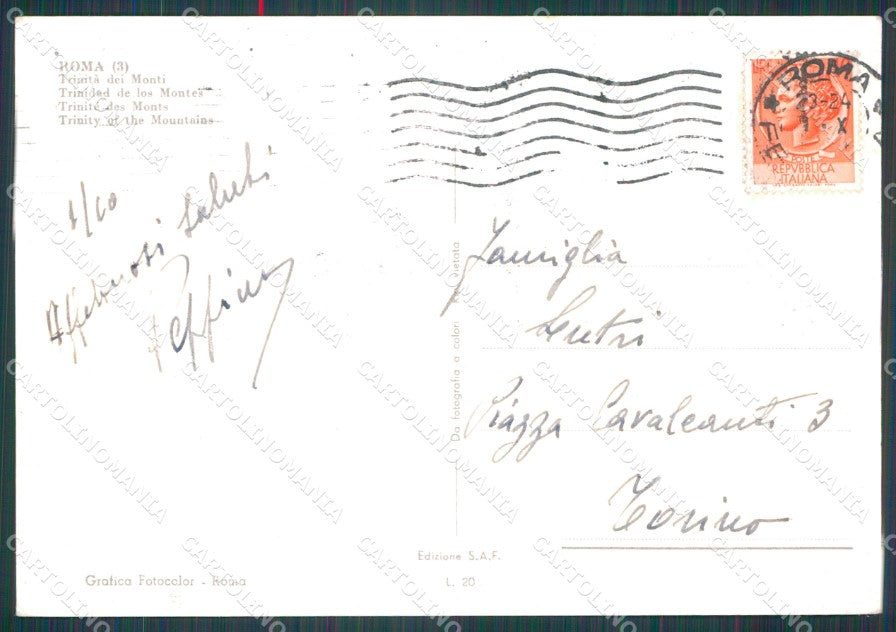 ROMA (3)
Trinità dei Monti
Trinidad de los Montes
Trinité des Monts
Trinity of the Mountains
1/10
Affettuosi saluti
Peppino
ROMA
23-24
1 - X
POSTE
REPVBBLICA
ITALIANA
Famiglia
Lentri
Piazza Cavalcanti 3
Torino
Da fotografia a colori Rip. vietata
Edizione S.A.F.
L. 20
Grafica Fotocolor - Roma
CARTOLINOMANIA